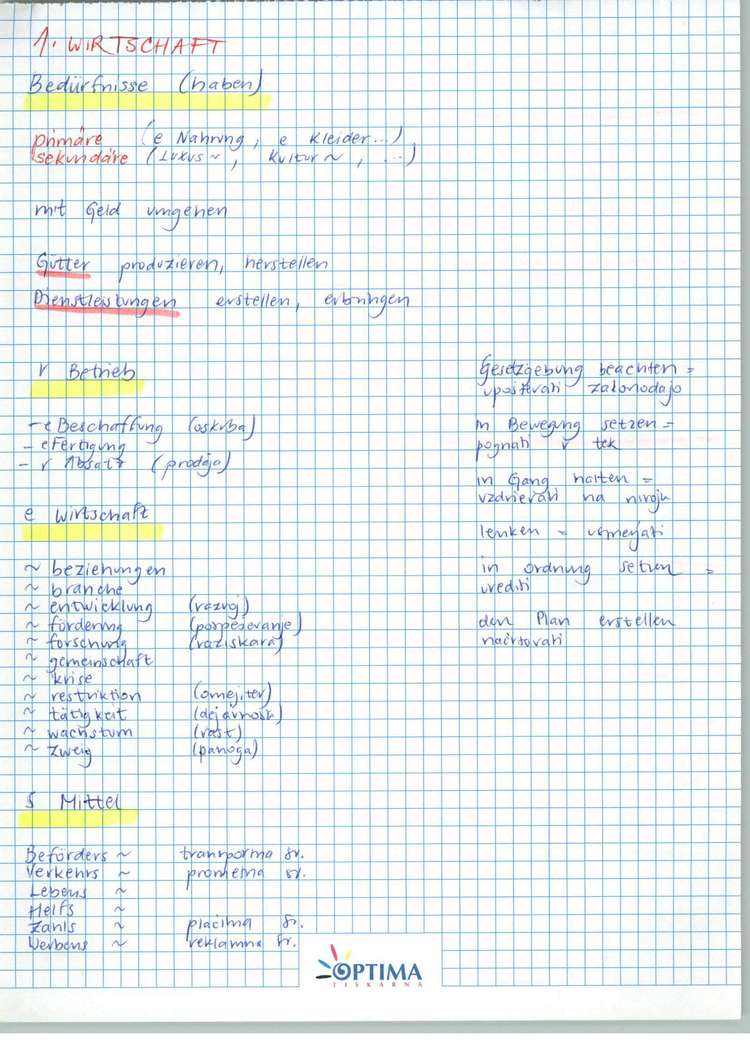 1. WIRTSCHAFT
Bedürfnisse (haben)
primäre (e Nahrung, e Kleider...)
sekundäre (Luxus ~, Kultur ~, ...)
mit Geld umgehen
Gütter produzieren, herstellen
Dienstleistungen erstellen, erbringen
r Betrieb
- e Beschaffung (oskrba)
- e Fertigung
- r Absatz (prodaja)
e Wirtschaft
~ beziehungen
~ branche
~ entwicklung (razvoj)
~ förderung (pospeševanje)
~ forschung (raziskava)
~ gemeinschaft
~ krise
~ restriktion (omejitev)
~ tätigkeit (dejavnost)
~ wachstum (rast)
~ zweig (panoga)
s Mittel
Beförders ~ tranporma sr.
Verkehrs ~ prometna sr.
Lebens ~
Helfs ~
Zahls ~ plačilna sr.
Werbens ~ reklamna sr.
Gesetzgebung beachten =
upoštevati zakonodajo
in Bewegung setzen =
pognati v tek
in Gang halten =
vzdrževati na nivoju
lenken = usmerjati
in ordnung setzen =
urediti
den Plan erstellen
načrtovati
OPTIMA
TISKARNA